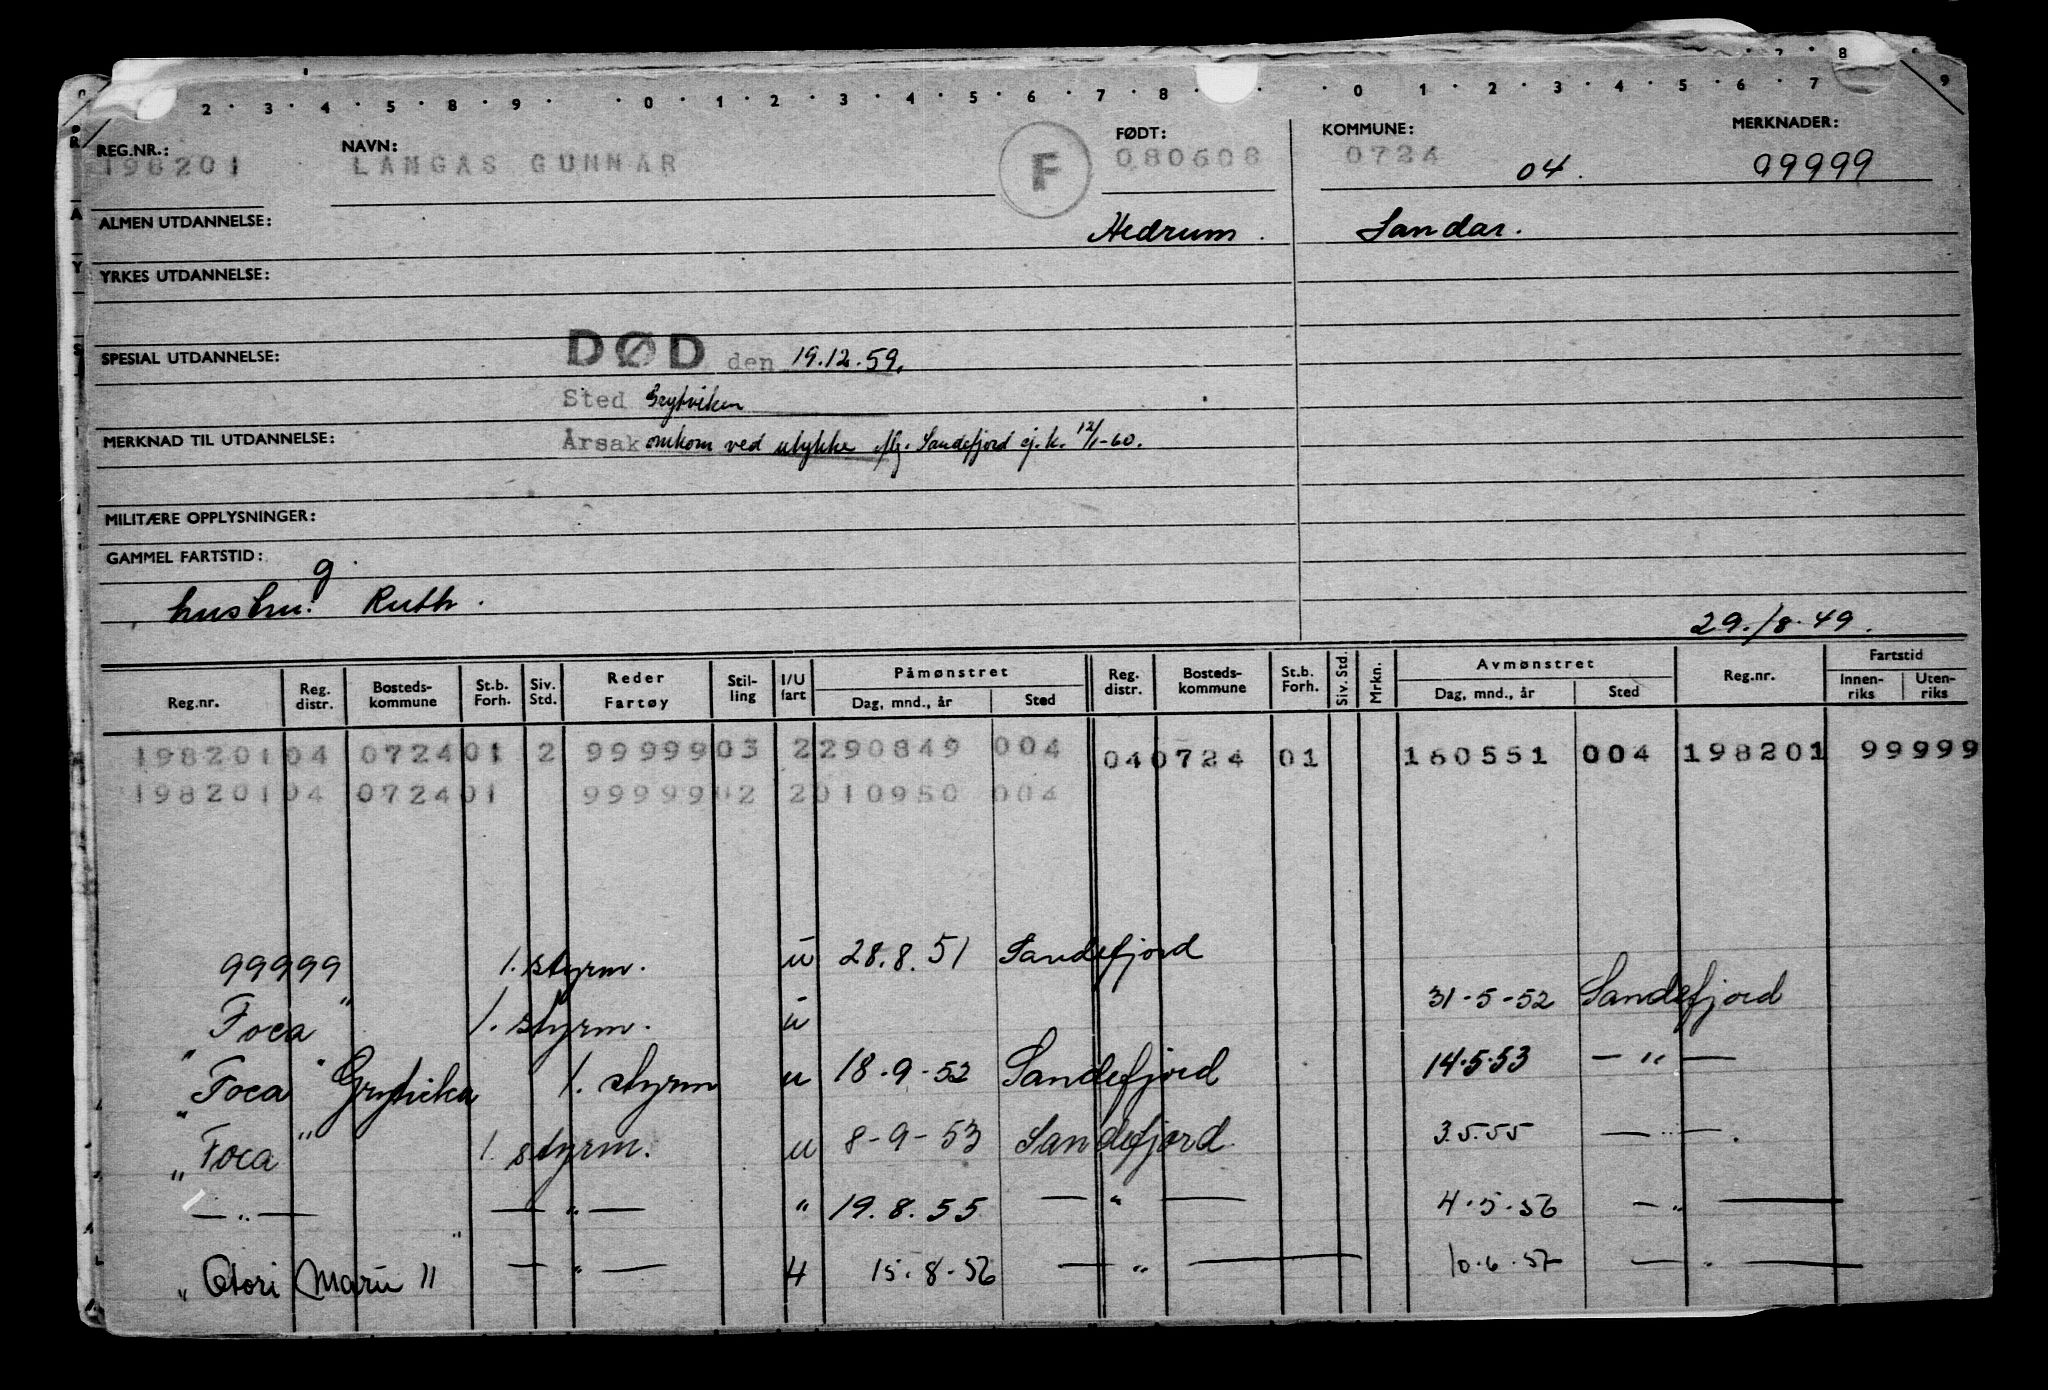 2 · 3 · 4 · 5 · 8 · 9 · · 0 · 1 · 2 · 3 · 4 · 5 · 6 · 7 · 8 · · · 0 · 1 · 2 · 3 · 4 · 5 · 6 · 7 9
REG.NR.: NAVN: FØDT: KOMMUNE: MERKNADER:
198201 LANGAS GUNNAR F 080608 0724 04. 99999
ALMEN UTDANNELSE: Hedrum. Sandar.
YRKES UTDANNELSE:
SPESIAL UTDANNELSE: DØD den 19.12.59.
Sted Grytviken
MERKNAD TIL UTDANNELSE: Årsak omkom ved ulykke Sandefjord sj.k. 12/1-60.
MILITÆRE OPPLYSNINGER:
GAMMEL FARTSTID:
g.
hustru: Ruth. 29./8.49.
Reg.nr. Reg. distr. Bosteds-kommune St.b. Forh. Siv. Std. Reder Fartøy Stil-ling I/U fart Påmønstret Dag, mnd., år Sted Reg. distr. Bosteds-kommune St.b. Forh. Siv. Std. Mrkn. Avmønstret Dag, mnd., år Sted Reg.nr. Fartstid Innen-riks Uten-riks
198201 04 0724 01 2 99999 03 2 290849 004 04 0724 01 160551 004 198201 99999
198201 04 0724 01 99999 02 2 010950 004
99999 1. styrm. u 28.8.51 Sandefjord
"Foca" 1. styrm. u 31-5-52 Sandefjord
"Foca" Grytvika 1. styrm u 18-9-52 Sandefjord 14.5.53 — " —
"Foca" 1. styrm. u 8-9-53 Sandefjord 3.5.55 — " —.
— " — — " — " 19.8.55 — " — 4.5.56 — " —
"Otori Maru" — " — u 15.8.56 — " — 10.6.57 — " —